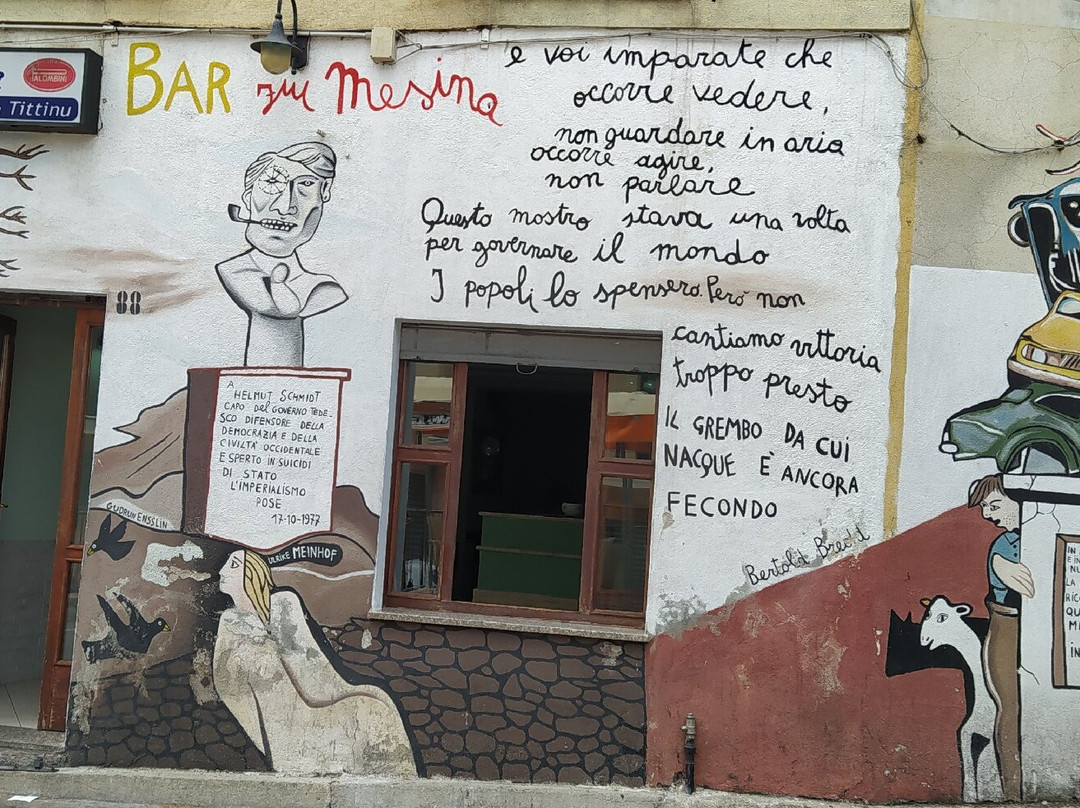 PALOMBINI
Tittinu
BAR zíu MESINA
e voi imparate che
occorre vedere,
non guardare in aria
occorre agire,
non parlare
Questo mostro stava una volta
per governare il mondo
I popoli lo spensero. Però non
cantiamo vittoria
troppo presto
IL GREMBO DA CUI
NACQUE È ANCORA
FECONDO
Bertold Brecht
88
A
HELMUT SCHMIDT
CAPO DEL GOVERNO TEDE-
SCO DIFENSORE DELLA
DEMOCRAZIA E DELLA
CIVILTA' OCCIDENTALE
E SPERTO IN SUICIDI
DI STATO
L'IMPERIALISMO
POSE
17-10-1977
GUDRUN ENSSLIN
ULRIKE MEINHOF